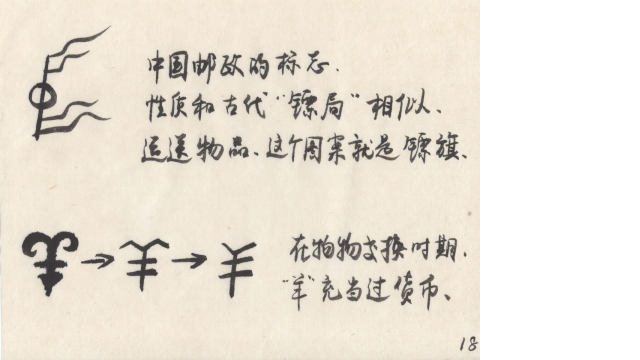 中国邮政的标志.
性质和古代“镖局”相似、
运送物品、这个图案就是镖旗、
在物物交换时期.
“羊”充当过货币、
18